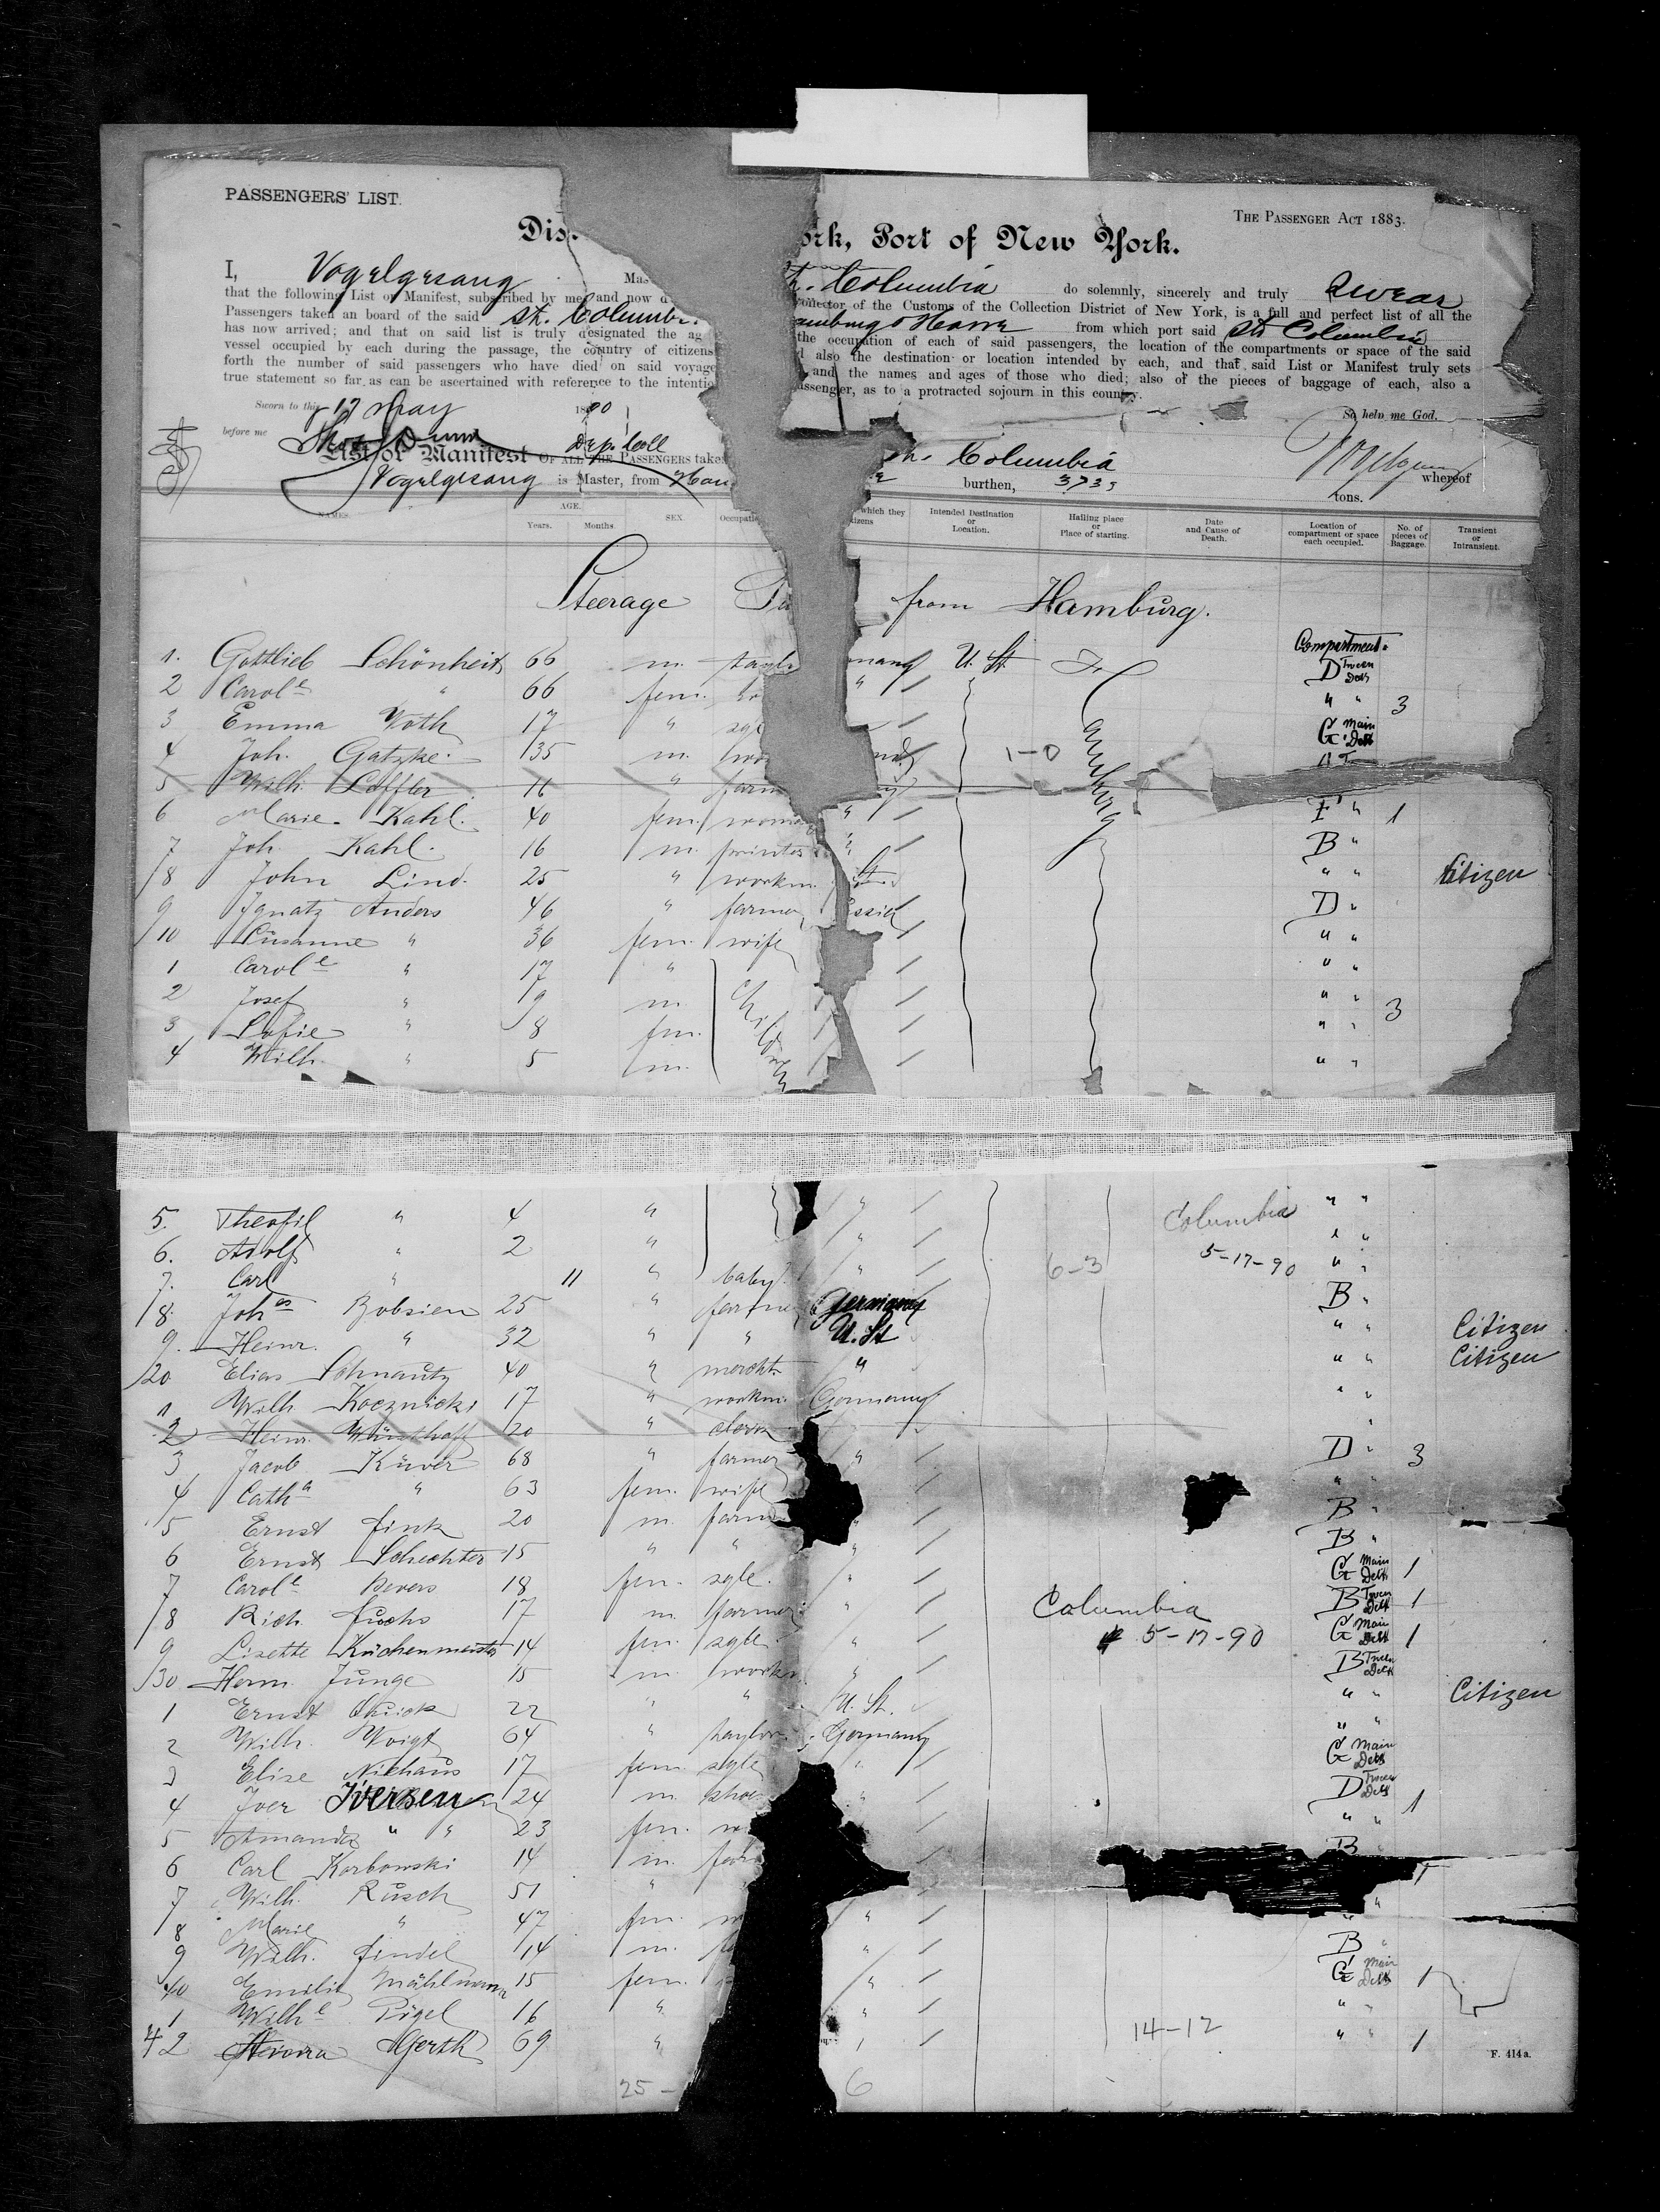 PASSENGERS' LIST.
THE PASSENGER ACT 1883.
Dis ork, Port of New York.
I, Vogelgesang Mas Columbia do solemnly, sincerely and truly swear
that the following List or Manifest, subscribed by me, and now d Collector of the Customs of the Collection District of New York, is a full and perfect list of all the
Passengers taken on board of the said st. Columbi amburg & Havre from which port said St Columbia
has now arrived; and that on said list is truly designated the ag the occupation of each of said passengers, the location of the compartments or space of the said
vessel occupied by each during the passage, the country of citizens also the destination or location intended by each, and that said List or Manifest truly sets
forth the number of said passengers who have died on said voyage and the names and ages of those who died; also of the pieces of baggage of each, also a
true statement so far as can be ascertained with reference to the intentio assenger, as to a protracted sojourn in this country.
Sworn to this 17 May 1890 So help me God.
before me Thos Dunn Dep. Coll
List or Manifest OF ALL THE PASSENGERS take Columbia whereof
Vogelgesang is Master, from Ham burthen, 3737 tons.
NAMES. AGE. Years. Months. SEX. Occupatio which they izens Intended Destination or Location. Hailing place or Place of starting. Date and Cause of Death. Location of compartment or space each occupied. No. of pieces of Baggage. Transient or Intransient.
Steerage Pa from Hamburg.
Compartment
1. Gottlieb Schönheit 66 m. taylo many U. St. Hamburg D Tween Deck
2 Carol e " 66 fem. " " " 3
3 Emma Voth 17 " sgl G Main Deck
4 Joh. Gatzke 35 m. wor 1-0
5 Wilh. Loffler 16 " farm
6 Marie Kahl 40 fem. woman " F " 1
7 Joh. Kahl 16 m. printer " B "
8 John Lind 25 " workm. St. " " Citizen
9 Ignatz Anders 46 " farmer ussia D "
10 Susanne " 36 fem. wife " "
1 Carol e " 17 " children " "
2 Josef " 9 m. " " 3
3 Sofie " 8 fm. " "
4 Wilh. " 5 m. " "
5. Theofil " 4 " " Columbia " "
6. Adolf " 2 " " " "
7. Carl " 11 " baby " 6-3 5-17-90 " "
8. Joh es Bobsien 25 " farmer Germany B "
9. Heinr. " 32 " " U. St " " Citizen
20 Elias Schnautz 40 " mercht. " " " Citizen
1 Wilh. Kocznicki 17 " workm. Germany " "
2 Heinr. Wünsthoff 20 " clerk "
3 Jacob Küver 68 " farmer " D " 3
4 Cath a " 63 fem. wife " "
5 Ernst Fink 20 m. farm B "
6 Ernst Schechter 15 " " " B "
7 Carol e Bevers 18 fem. sgle. " G Main Deck 1
8 Rich. Fuchs 17 m. farmer " Columbia B Tween Deck 1
9 Lisette Küchenmeister 14 fem. sgle. " 5-17-90 G Main Deck 1
30 Herm. Junge 15 m. workm " B Tween Deck
1 Ernst Quick 22 " " U. St. " " Citizen
2 Wilh. Voigt 64 " taylor Germany " "
3 Elise Niehaus 17 fem. sgle " G Main Deck
4 Iver Iversen 24 m. shoe " D Tween Deck 1
5 Amanda " " 23 fem. " "
6 Carl Korbowski 14 m. B 1
7 Wilh. Rusch 51 " "
8 Marie " 47 fm. " "
9 Wilh. Findel 14 m. " B "
40 Emilie Mählmann 15 fem. " G Main Deck 1
1 Wilh e Pigel 16 " " " "
42 Gerth 69 " 14-12 " " 1
25 - 6
F. 414a.